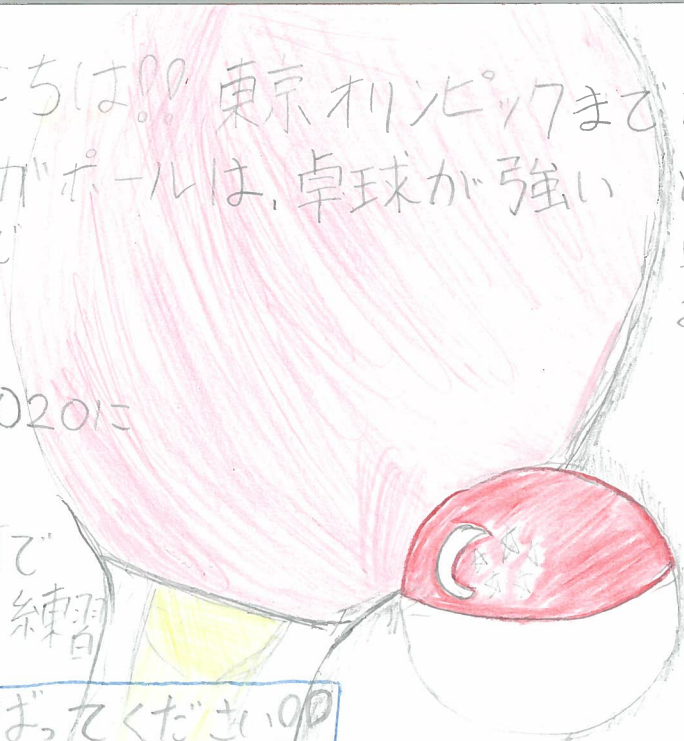 ちは!! 東京オリンピックまで
ガポールは、卓球が強い
2020に
で
練習
ばってください!!